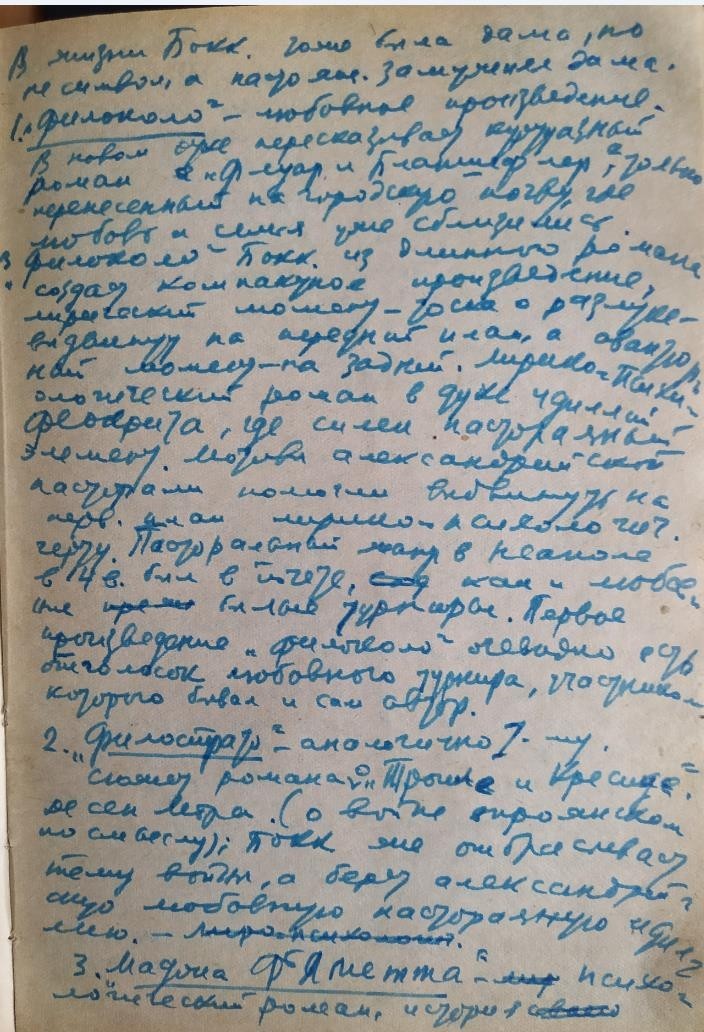 В жизни Бокк. тоже была дама, но
не символ, а настоящ. замужняя дама.
1. „Филоколо" – любовное произведение.
В новом духе пересказывает куртуазный
роман „Флуар и Бланшефлер", только
перенесенный на городскую почву, где
любовь и семья уже сблизились.
В „Филоколо" Бокк. из длинного романа
создает компактное произведение,
лирический момент – тоска о разлуке –
выдвинут на передний план, а авантюр-
ный момент – на задний. Лирико-психо-
логический роман в духе идиллий
Феокрита, где силен пасторальный
элемент. Мотивы александрийской
пасторали помогли выдвинуть на
перв. план лирико-психологич.
черту. Пасторальный жанр в Неаполе
в 14 в. был в почете, как и любов-
ные были турниры. Первое
произведение „Филоколо" очевидно есть
отголосок любовного турнира, участником
которого бывал и сам автор.
2. „Филострато" – аналогично 1-му.
Сюжет романа о „Троиле и Крессиде".
де Сен Мора. (о войне троянской
по смыслу); Бокк же отбрасывает
тему войны, а берет александрий-
скую любовную пасторальную идил-
лию.
3. „Мадона Фьяметта" – психо-
логический роман, история